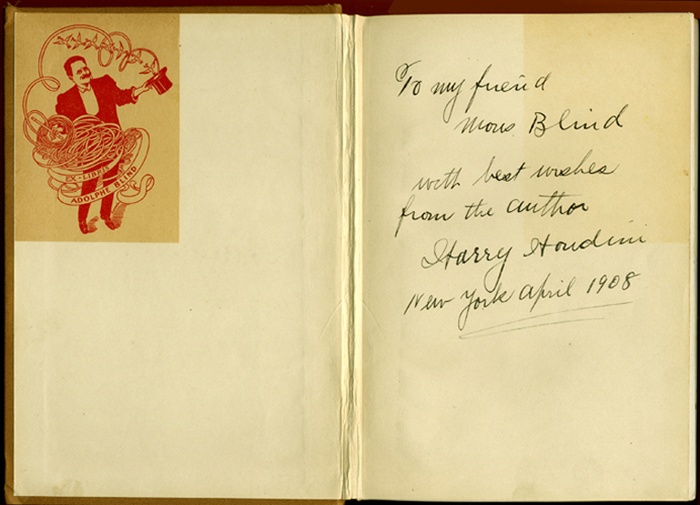 EX-LIBRIS
ADOLPHE BLIND
To my friend
Mons. Blind
with best wishes
from the author
Harry Houdini
New York April 1908